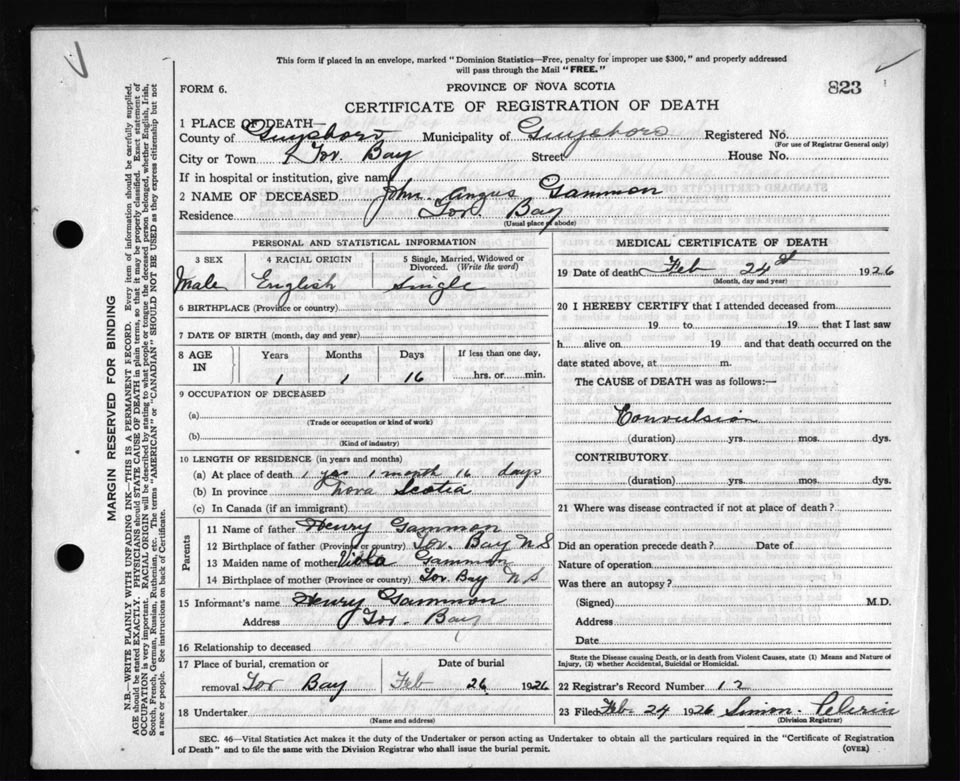 This form if placed in an envelope, marked "Dominion Statistics—Free, penalty for improper use $300," and properly addressed
will pass through the Mail "FREE."
FORM 6.
PROVINCE OF NOVA SCOTIA
823
CERTIFICATE OF REGISTRATION OF DEATH
1 PLACE OF DEATH—
County of Guysboro Municipality of Guysboro Registered No.
(For use of Registrar General only)
City or Town Tor Bay Street House No.
If in hospital or institution, give name
2 NAME OF DECEASED John Angus Gammon
Residence Tor Bay
(Usual place of abode)
PERSONAL AND STATISTICAL INFORMATION
3 SEX 4 RACIAL ORIGIN 5 Single, Married, Widowed or
Divorced. (Write the word)
Male English Single
6 BIRTHPLACE (Province or country)
7 DATE OF BIRTH (month, day and year)
8 AGE Years Months Days If less than one day,
IN 1 1 16 hrs. or min.
9 OCCUPATION OF DECEASED
(a)
(Trade or occupation or kind of work)
(b)
(Kind of industry)
10 LENGTH OF RESIDENCE (in years and months)
(a) At place of death 1 1 month 16 days
(b) In province Nova Scotia
(c) In Canada (if an immigrant)
Parents
11 Name of father Henry Gammon
12 Birthplace of father (Province or country) Tor. Bay N S
13 Maiden name of mother Viola Gammon
14 Birthplace of mother (Province or country) Tor Bay N S
15 Informant's name Henry Gammon
Address Tor. Bay
16 Relationship to deceased
17 Place of burial, cremation or Date of burial
removal Tor Bay Feb 26 1926
18 Undertaker
(Name and address)
MEDICAL CERTIFICATE OF DEATH
19 Date of death Feb 24 1926
(Month, day and year)
20 I HEREBY CERTIFY that I attended deceased from
19 to 19 that I last saw
h alive on 19 and that death occurred on the
date stated above, at m.
The CAUSE of DEATH was as follows:—
Convulsion
(duration) yrs. mos. dys.
CONTRIBUTORY.
(duration) yrs. mos. dys.
21 Where was disease contracted if not at place of death?
Did an operation precede death? Date of
Nature of operation
Was there an autopsy?
(Signed) M.D.
Address
Date
State the Disease causing Death, or in death from Violent Causes, state (1) Means and Nature of
Injury, (2) whether Accidental, Suicidal or Homicidal.
22 Registrar's Record Number 12
23 Filed Feb 24 1926 Simon Pelerin
(Division Registrar)
SEC. 46—Vital Statistics Act makes it the duty of the Undertaker or person acting as Undertaker to obtain all the particulars required in the "Certificate of Registration
of Death" and to file the same with the Division Registrar who shall issue the burial permit.
(OVER)
MARGIN RESERVED FOR BINDING
N.B.—WRITE PLAINLY WITH UNFADING INK—THIS IS A PERMANENT RECORD. Every item of information should be carefully supplied.
AGE should be stated EXACTLY. PHYSICIANS should STATE CAUSE OF DEATH in plain terms, so that it may be properly classified. Exact statement of
OCCUPATION is very important. RACIAL ORIGIN will be described by stating to what people or tongue the deceased person belonged, whether English, Irish,
Scotch, French, German, Russian, Ruthenian, etc. The terms "AMERICAN" or "CANADIAN" SHOULD NOT BE USED as they express citizenship but not
a race or people. See instructions on back of Certificate.